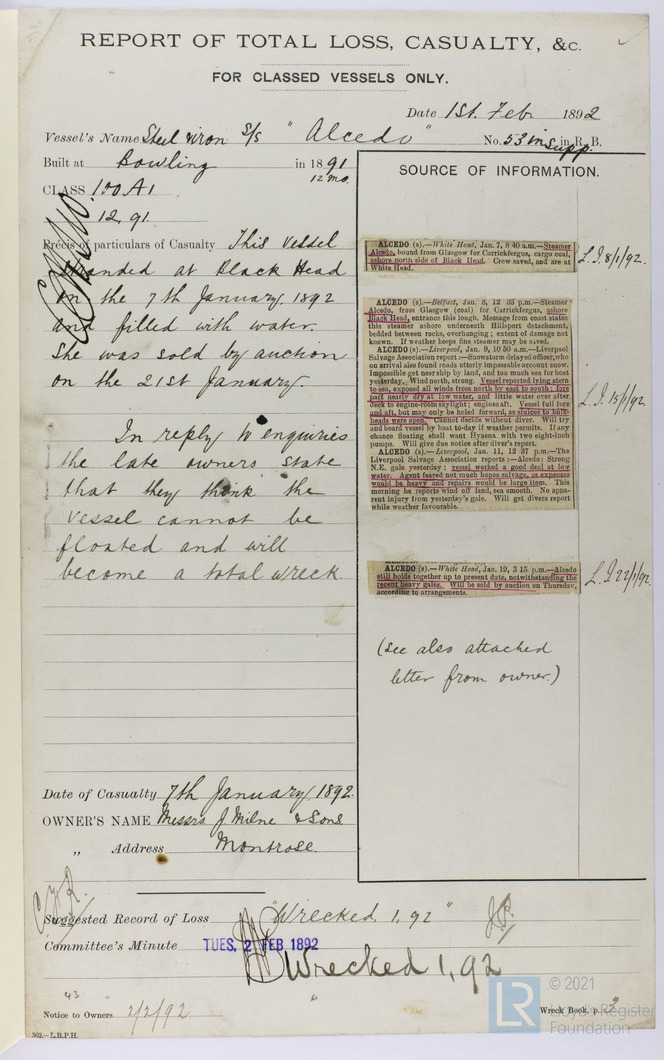 REPORT OF TOTAL LOSS, CASUALTY, &c.
FOR CLASSED VESSELS ONLY.
Date 1st. Feb 1892
Vessel's Name Steel & iron S/s "Alcedo" No. 53 in Supp. in R. B.
Built at Bowling in 1891
12 mo.
CLASS 100 A1
12.91
SOURCE OF INFORMATION.
Précis of particulars of Casualty This vessel
stranded at Black Head
on the 7th January, 1892
and filled with water.
She was sold by auction
on the 21st January.
In reply to enquiries
the late owners state
that they think the
vessel cannot be
floated and will
become a total wreck.
ALCEDO (s).—White Head, Jan. 7, 8 40 a.m.—Steamer
Alcedo, bound from Glasgow for Carrickfergus, cargo coal,
ashore north side of Black Head. Crew saved, and are at
White Head.
L.I. 8/1/92.
ALCEDO (s).—Belfast, Jan. 8, 12 35 p.m.—Steamer
Alcedo, from Glasgow (coal) for Carrickfergus, ashore
Black Head, entrance this lough. Message from coast states
this steamer ashore underneath Hillsport detachment,
bedded between rocks, overhanging; extent of damage not
known. If weather keeps fine steamer may be saved.
ALCEDO (s).—Liverpool, Jan. 9, 10 50 a.m.—Liverpool
Salvage Association report:—Snowstorm delayed officer, who
on arrival also found roads utterly impassable account snow.
Impossible get near ship by land, and too much sea for boat
yesterday. Wind north, strong. Vessel reported lying stern
to sea, exposed all winds from north by east to south; fore
part nearly dry at low water, and little water over after
deck to engine-room skylight; engines aft. Vessel full fore
and aft, but may only be holed forward, as sluices to bulk-
heads were open. Cannot decide without diver. Will try
and board vessel by boat to-day if weather permits. If any
chance floating shall want Hyæna with two eight-inch
pumps. Will give due notice after diver's report.
ALCEDO (s).—Liverpool, Jan. 11, 12 37 p.m.—The
Liverpool Salvage Association reports:—Alcedo: Strong
N.E. gale yesterday; vessel worked a good deal at low
water. Agent feared not much hopes salvage, as expenses
would be heavy and repairs would be large item. This
morning he reports wind off land, sea smooth. No appa-
rent injury from yesterday's gale. Will get divers report
while weather favourable.
L.I. 15/1/92.
ALCEDO (s).—White Head, Jan. 19, 3 15 p.m.—Alcedo
still holds together up to present date, notwithstanding the
recent heavy gales. Will be sold by auction on Thursday,
according to arrangements.
L.I. 22/1/92.
(see also attached
letter from owner.)
Date of Casualty 7th January, 1892.
OWNER'S NAME Messrs J. Milne & Sons.
„ Address Montrose.
Suggested Record of Loss "Wrecked 1,92"
Committee's Minute TUES. 2 FEB 1892
Wrecked 1,92
43
Notice to Owners 2/2/92
Wreck Book, p. 2
302.—L.R.P.H.
LR
© 2021
Lloyd's Register
Foundation